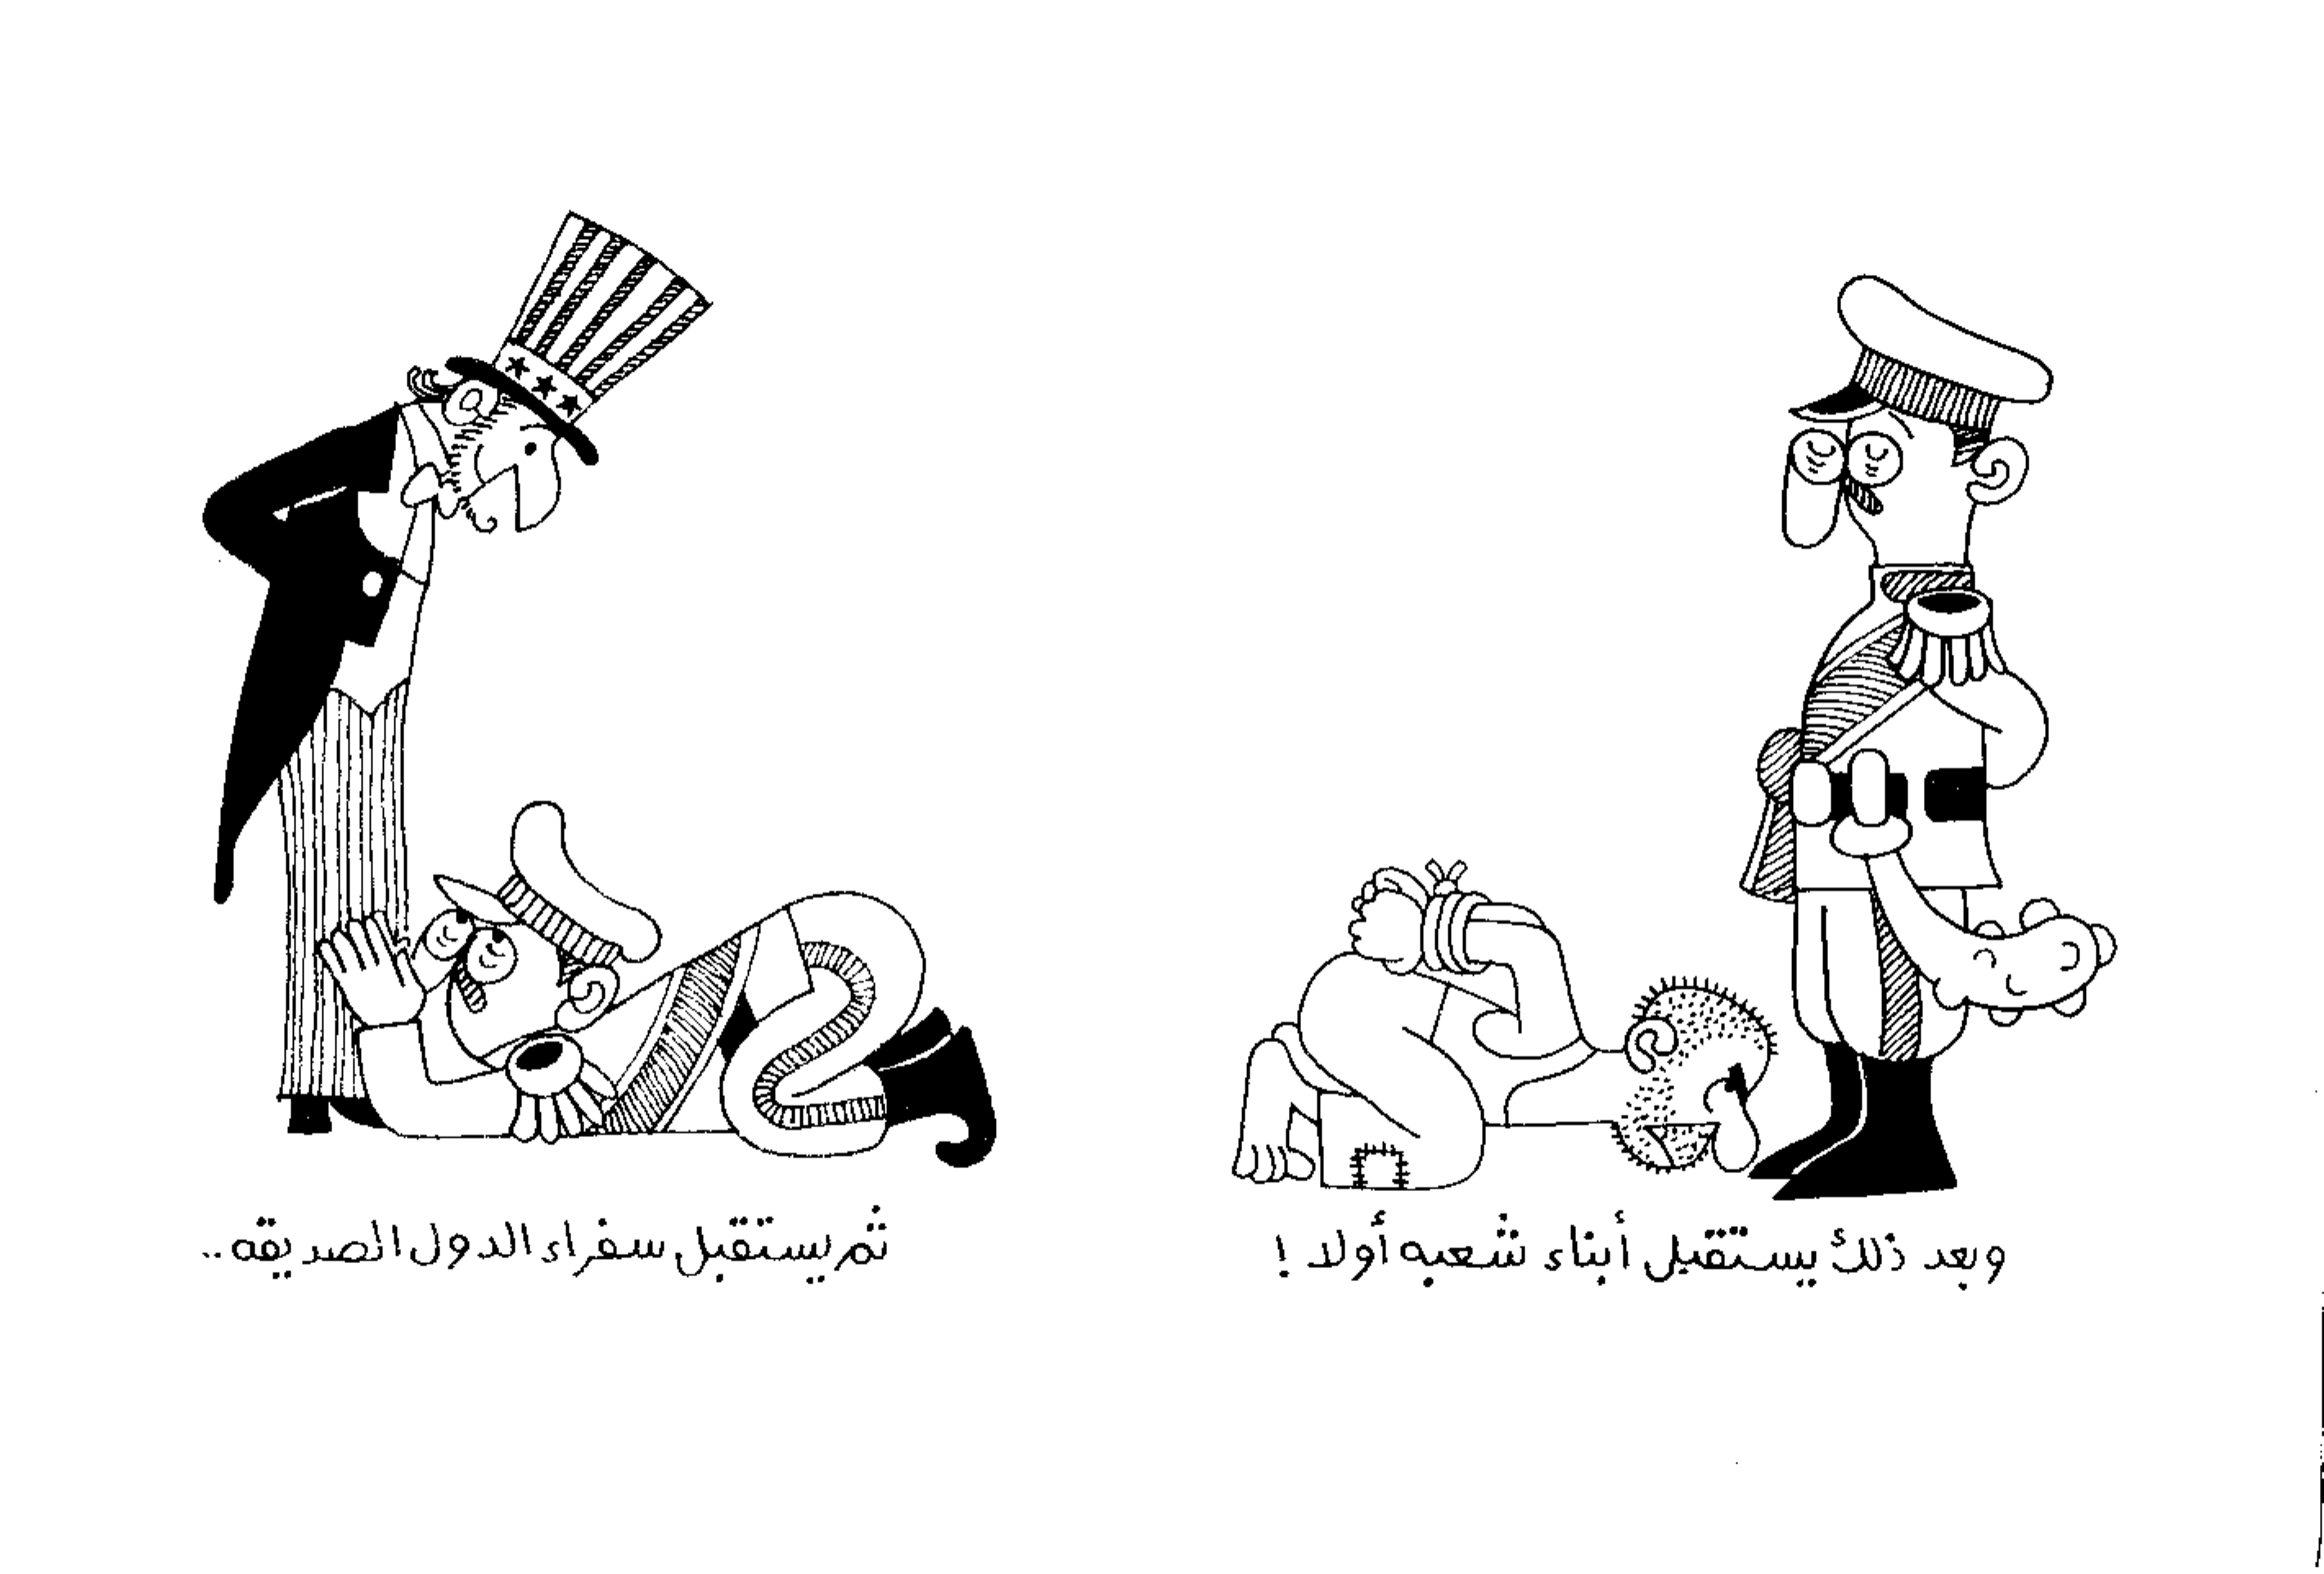 وبعد ذلك يستقبل أبناء شعبه أولد !
ثم يستقبل سفراء الدول الصديقه ..